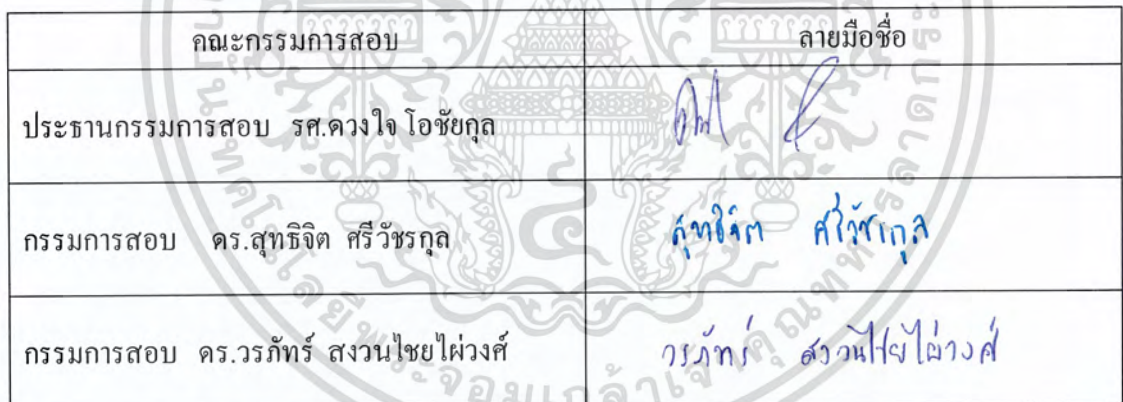 คณะกรรมการสอบ ลายมือชื่อ
ประธานกรรมการสอบ รศ.ดวงใจ โอชัยกุล
กรรมการสอบ ดร.สุทธิจิต ศรีวัชรกุล สุทธิจิต ศรีวัชรกุล
กรรมการสอบ ดร.วรภัทร์ สงวนไชยไผ่วงศ์ วรภัทร์ สงวนไชยไผ่วงศ์